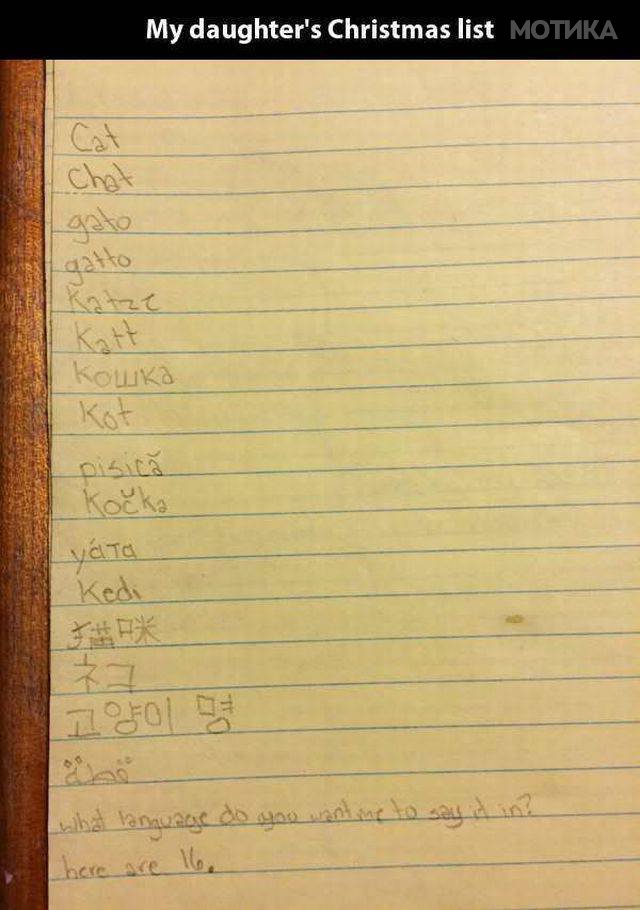 My daughter's Christmas list МОТИКА
Cat
Chat
gato
gatto
Katze
Katt
кошка
Kot
pisică
Kočka
γάτα
Kedi
猫咪
ネコ
고양이 명
what language do you want me to say it in?
here are 16.